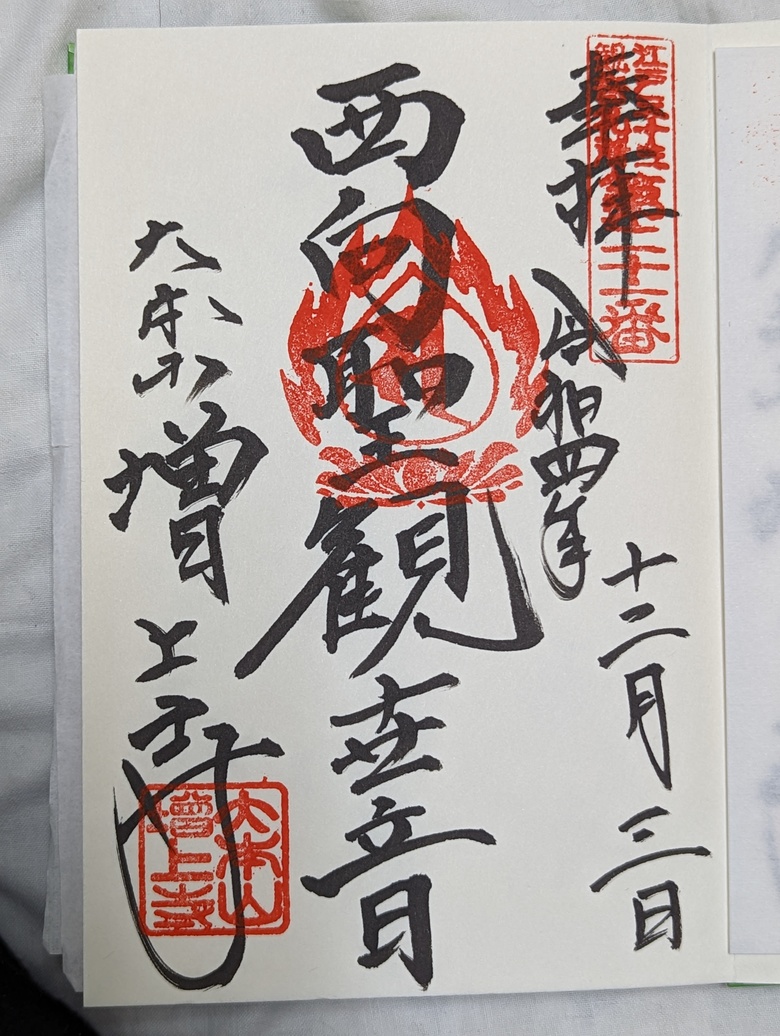 奉拝
江戸三十三観音第二十一番
令和四年
十二月三日
西向聖観世音
大本山
増上寺
大本山
増上寺